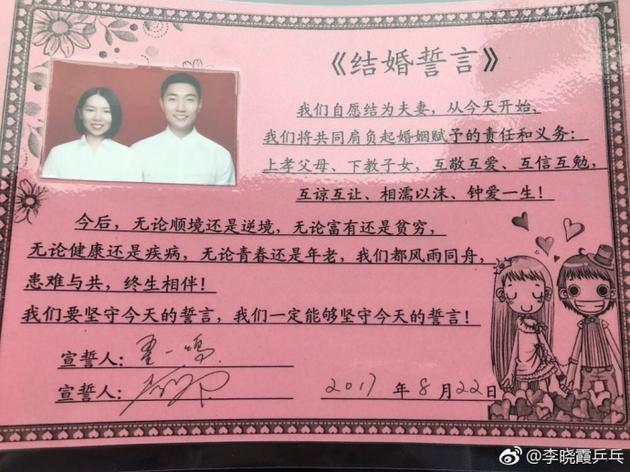 《结婚誓言》
我们自愿结为夫妻，从今天开始，
我们将共同肩负起婚姻赋予的责任和义务：
上孝父母、下教子女，互敬互爱、互信互勉，
互谅互让、相濡以沫、钟爱一生！
今后，无论顺境还是逆境，无论富有还是贫穷，
无论健康还是疾病，无论青春还是年老，我们都风雨同舟，
患难与共，终生相伴！
我们要坚守今天的誓言，我们一定能够坚守今天的誓言！
宣誓人：翟一鸣
宣誓人：
2017 年 8 月 22 日
@李晓霞乒乓